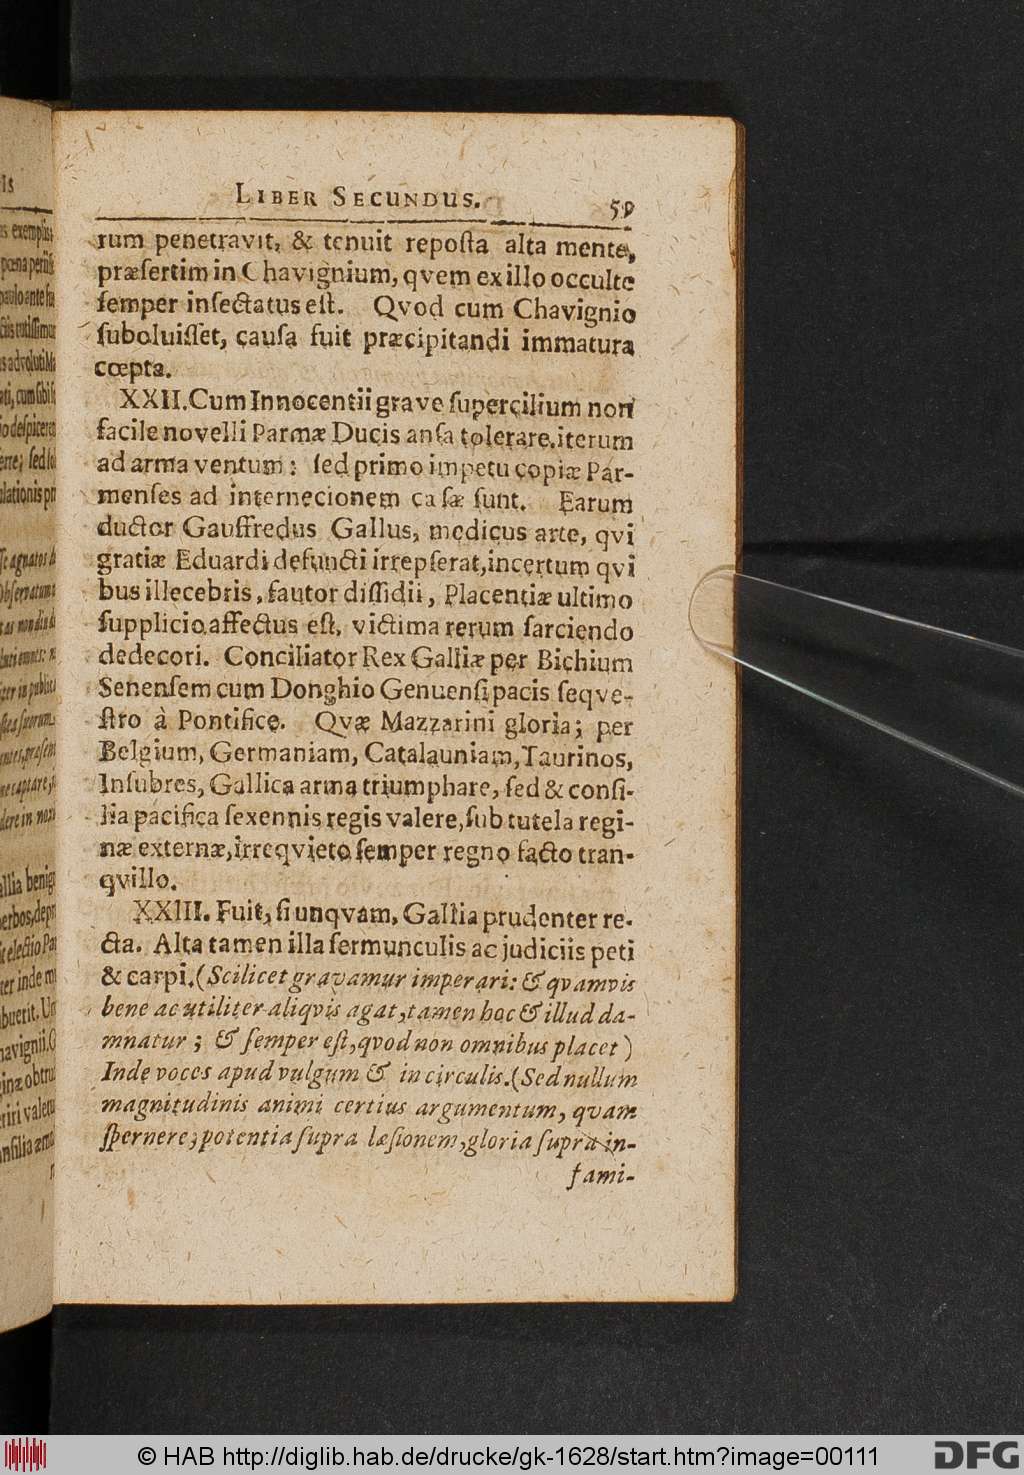 LIBER SECUNDUS. 59
rum penetravit, & tenuit reposta alta mente,
præsertim in Chavignium, qvem ex illo occulte
semper insectatus est. Qvod cum Chavignio
suboluisset, causa fuit præcipitandi immatura
cœpta.
XXII. Cum Innocentii grave supercilium non
facile novelli Parmæ Ducis ansa tolerare, iterum
ad arma ventum: sed primo impetu copiæ Par-
menses ad internecionem cæsæ sunt. Earum
ductor Gauffredus Gallus, medicus arte, qvi
gratiæ Eduardi defuncti irrepserat, incertum qvi
bus illecebris, fautor dissidii, Placentiæ ultimo
supplicio affectus est, victima rerum sarciendo
dedecori. Conciliator Rex Galliæ per Bichium
Senensem cum Donghio Genuensi pacis seqve-
stro à Pontifice. Qvæ Mazzarini gloria; per
Belgium, Germaniam, Catalauniam, Taurinos,
Insubres, Gallica arma triumphare, sed & consi-
lia pacifica sexennis regis valere, sub tutela regi-
næ externæ, irreqvieto semper regno facto tran-
qvillo.
XXIII. Fuit, si unqvam, Gallia prudenter re-
cta. Alta tamen illa sermunculis ac judiciis peti
& carpi. (Scilicet gravamur imperari: & qvamvis
bene ac utiliter aliqvis agat, tamen hoc & illud da-
mnatur; & semper est, qvod non omnibus placet)
Inde voces apud vulgum & in circulis. (Sed nullum
magnitudinis animi certius argumentum, qvam
spernere; potentia supra læsionem, gloria supra in-
fami-
© HAB http://diglib.hab.de/drucke/gk-1628/start.htm?image=00111
DFG